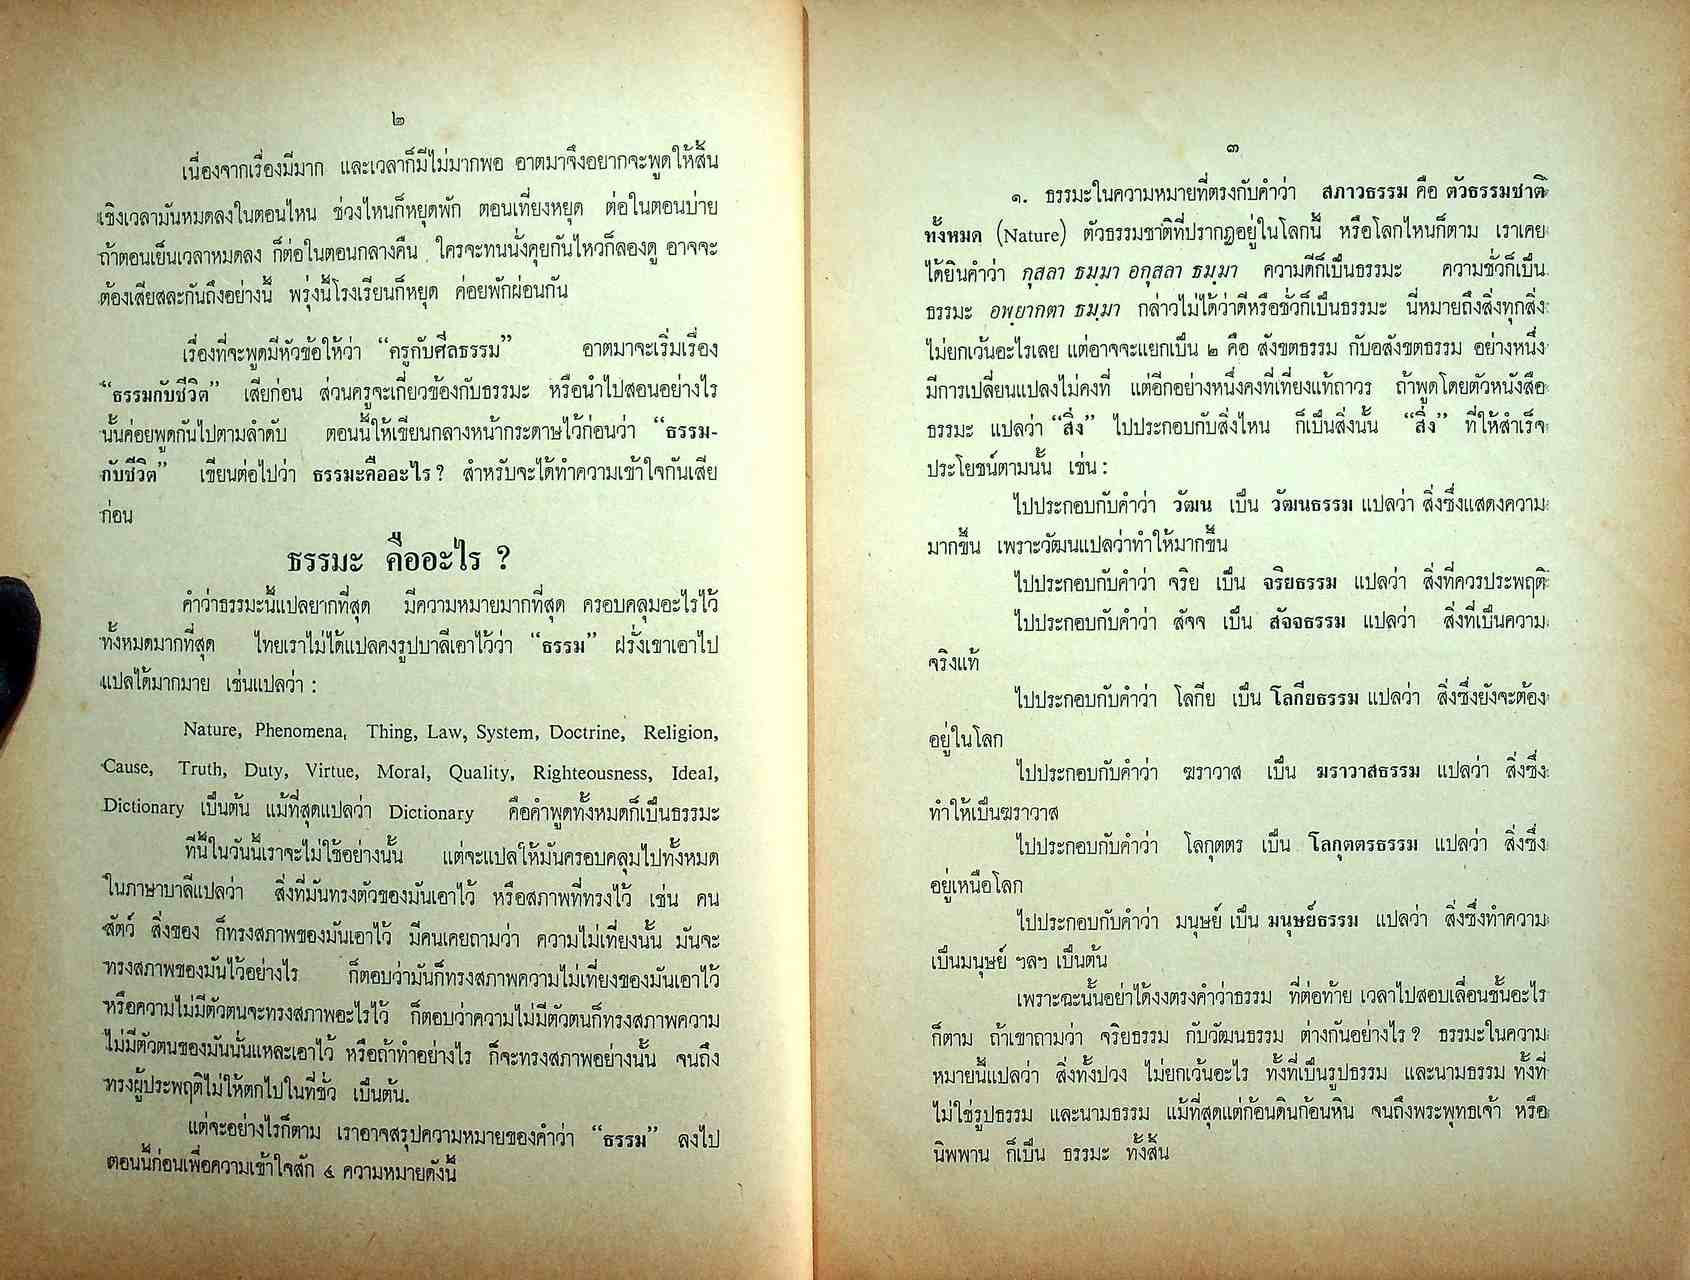 ๒
เนื่องจากเรื่องมีมาก และเวลาก็มีไม่มากพอ อาตมาจึงอยากจะพูดให้สิ้น
เชิงเวลามันหมดลงในตอนไหน ช่วงไหนก็หยุดพัก ตอนเที่ยงหยุด ต่อในตอนบ่าย
ถ้าตอนเย็นเวลาหมดลง ก็ต่อในตอนกลางคืน ใครจะทนนั่งคุยกันไหวก็ลองดู อาจจะ
ต้องเสียสละกันถึงอย่างนี้ พรุ่งนี้โรงเรียนก็หยุด ค่อยพักผ่อนกัน
เรื่องที่จะพูดมีหัวข้อให้ว่า “ครูกับศีลธรรม” อาตมาจะเริ่มเรื่อง
“ธรรมกับชีวิต” เสียก่อน ส่วนครูจะเกี่ยวข้องกับธรรมะ หรือนำไปสอนอย่างไร
นั้นค่อยพูดกันไปตามลำดับ ตอนนี้ให้เขียนกลางหน้ากระดาษไว้ก่อนว่า “ธรรม-
กับชีวิต” เขียนต่อไปว่า ธรรมะคืออะไร ? สำหรับจะได้ทำความเข้าใจกันเสีย
ก่อน
ธรรมะ คืออะไร ?
คำว่าธรรมะนี้แปลยากที่สุด มีความหมายมากที่สุด ครอบคลุมอะไรไว้
ทั้งหมดมากที่สุด ไทยเราไม่ได้แปลคงรูปบาลีเอาไว้ว่า “ธรรม” ฝรั่งเขาเอาไป
แปลได้มากมาย เช่นแปลว่า :
Nature, Phenomena, Thing, Law, System, Doctrine, Religion,
Cause, Truth, Duty, Virtue, Moral, Quality, Righteousness, Ideal,
Dictionary เป็นต้น แม้ที่สุดแปลว่า Dictionary คือคำพูดทั้งหมดก็เป็นธรรมะ
ทีนี้ในวันนี้เราจะไม่ใช้อย่างนั้น แต่จะแปลให้มันครอบคลุมไปทั้งหมด
ในภาษาบาลีแปลว่า สิ่งที่มันทรงตัวของมันเอาไว้ หรือสภาพที่ทรงไว้ เช่น คน
สัตว์ สิ่งของ ก็ทรงสภาพของมันเอาไว้ มีคนเคยถามว่า ความไม่เที่ยงนั้น มันจะ
ทรงสภาพของมันไว้อย่างไร ก็ตอบว่ามันก็ทรงสภาพความไม่เที่ยงของมันเอาไว้
หรือความไม่มีตัวตนจะทรงสภาพอะไรไว้ ก็ตอบว่าความไม่มีตัวตนก็ทรงสภาพความ
ไม่มีตัวตนของมันนั่นแหละเอาไว้ หรือถ้าทำอย่างไร ก็จะทรงสภาพอย่างนั้น จนถึง
ทรงผู้ประพฤติไม่ให้ตกไปในที่ชั่ว เป็นต้น.
แต่จะอย่างไรก็ตาม เราอาจสรุปความหมายของคำว่า “ธรรม” ลงไป
ตอนนี้ก่อนเพื่อความเข้าใจสัก ๔ ความหมายดังนี้
๓
๑. ธรรมะในความหมายที่ตรงกับคำว่า สภาวธรรม คือ ตัวธรรมชาติ
ทั้งหมด (Nature) ตัวธรรมชาติที่ปรากฏอยู่ในโลกนี้ หรือโลกไหนก็ตาม เราเคย
ได้ยินคำว่า กุสลา ธมฺมา อกุสลา ธมฺมา ความดีก็เป็นธรรมะ ความชั่วก็เป็น
ธรรมะ อพฺยากตา ธมฺมา กล่าวไม่ได้ว่าดีหรือชั่วก็เป็นธรรมะ นี่หมายถึงสิ่งทุกสิ่ง
ไม่ยกเว้นอะไรเลย แต่อาจจะแยกเป็น ๒ คือ สังขตธรรม กับอสังขตธรรม อย่างหนึ่ง
มีการเปลี่ยนแปลงไม่คงที่ แต่อีกอย่างหนึ่งคงที่เที่ยงแท้ถาวร ถ้าพูดโดยตัวหนังสือ
ธรรมะ แปลว่า “สิ่ง” ไปประกอบกับสิ่งไหน ก็เป็นสิ่งนั้น “สิ่ง” ที่ให้สำเร็จ
ประโยชน์ตามนั้น เช่น :
ไปประกอบกับคำว่า วัฒน เป็น วัฒนธรรม แปลว่า สิ่งซึ่งแสดงความ
มากขึ้น เพราะวัฒนแปลว่าทำให้มากขึ้น
ไปประกอบกับคำว่า จริย เป็น จริยธรรม แปลว่า สิ่งที่ควรประพฤติ
ไปประกอบกับคำว่า สัจจ เป็น สัจจธรรม แปลว่า สิ่งที่เป็นความ
จริงแท้
ไปประกอบกับคำว่า โลกีย เป็น โลกียธรรม แปลว่า สิ่งซึ่งยังจะต้อง
อยู่ในโลก
ไปประกอบกับคำว่า ฆราวาส เป็น ฆราวาสธรรม แปลว่า สิ่งซึ่ง
ทำให้เป็นฆราวาส
ไปประกอบกับคำว่า โลกุตตร เป็น โลกุตตรธรรม แปลว่า สิ่งซึ่ง
อยู่เหนือโลก
ไปประกอบกับคำว่า มนุษย์ เป็น มนุษย์ธรรม แปลว่า สิ่งซึ่งทำความ
เป็นมนุษย์ ฯลฯ เป็นต้น
เพราะฉะนั้นอย่าได้งงตรงคำว่าธรรม ที่ต่อท้าย เวลาไปสอบเลื่อนชั้นอะไร
ก็ตาม ถ้าเขาถามว่า จริยธรรม กับวัฒนธรรม ต่างกันอย่างไร ? ธรรมะในความ
หมายนี้แปลว่า สิ่งทั้งปวง ไม่ยกเว้นอะไร ทั้งที่เป็นรูปธรรม และนามธรรม ทั้งที่
ไม่ใช่รูปธรรม และนามธรรม แม้ที่สุดแต่ก้อนดินก้อนหิน จนถึงพระพุทธเจ้า หรือ
นิพพาน ก็เป็น ธรรมะ ทั้งสิ้น